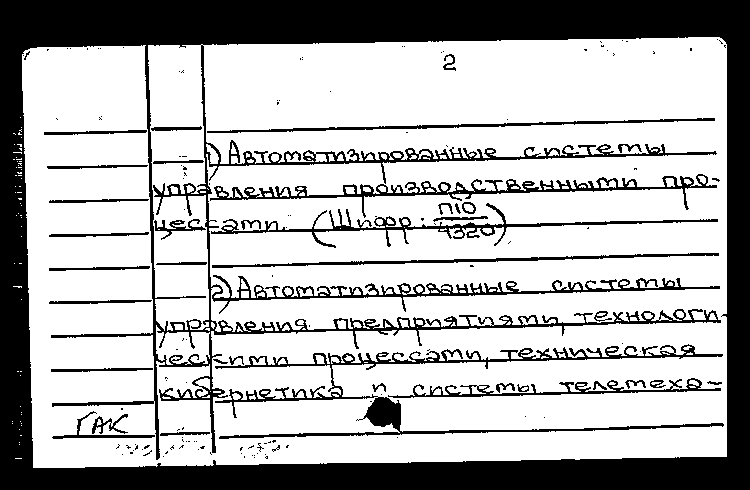 2
1) Автоматизированные системы
управления производственными про-
цессами. (Шифр: П10/4320)
2) Автоматизированные системы
управления предприятиями, технологи-
ческими процессами, техническая
кибернетика и системы телемеха-
ГАК